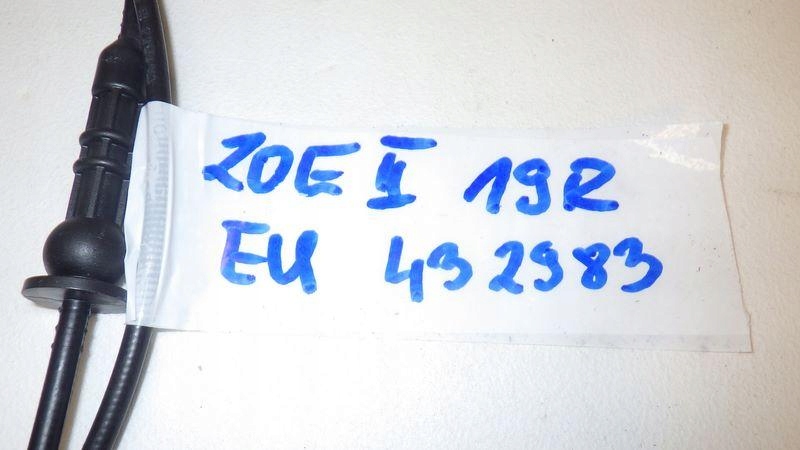 ZOE II 19R
EU 432983